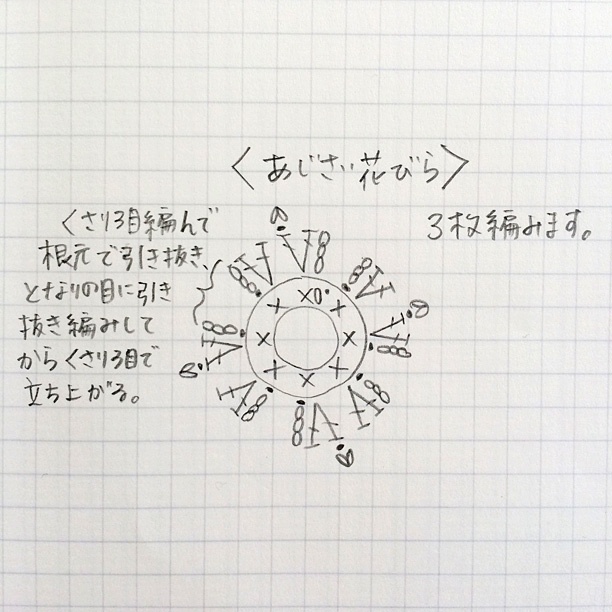 〈あじさい花びら〉
3枚編みます。
くさり3目編んで
根元で引き抜き、
となりの目に引き
抜き編みして
からくさり3目で
立ち上がる。